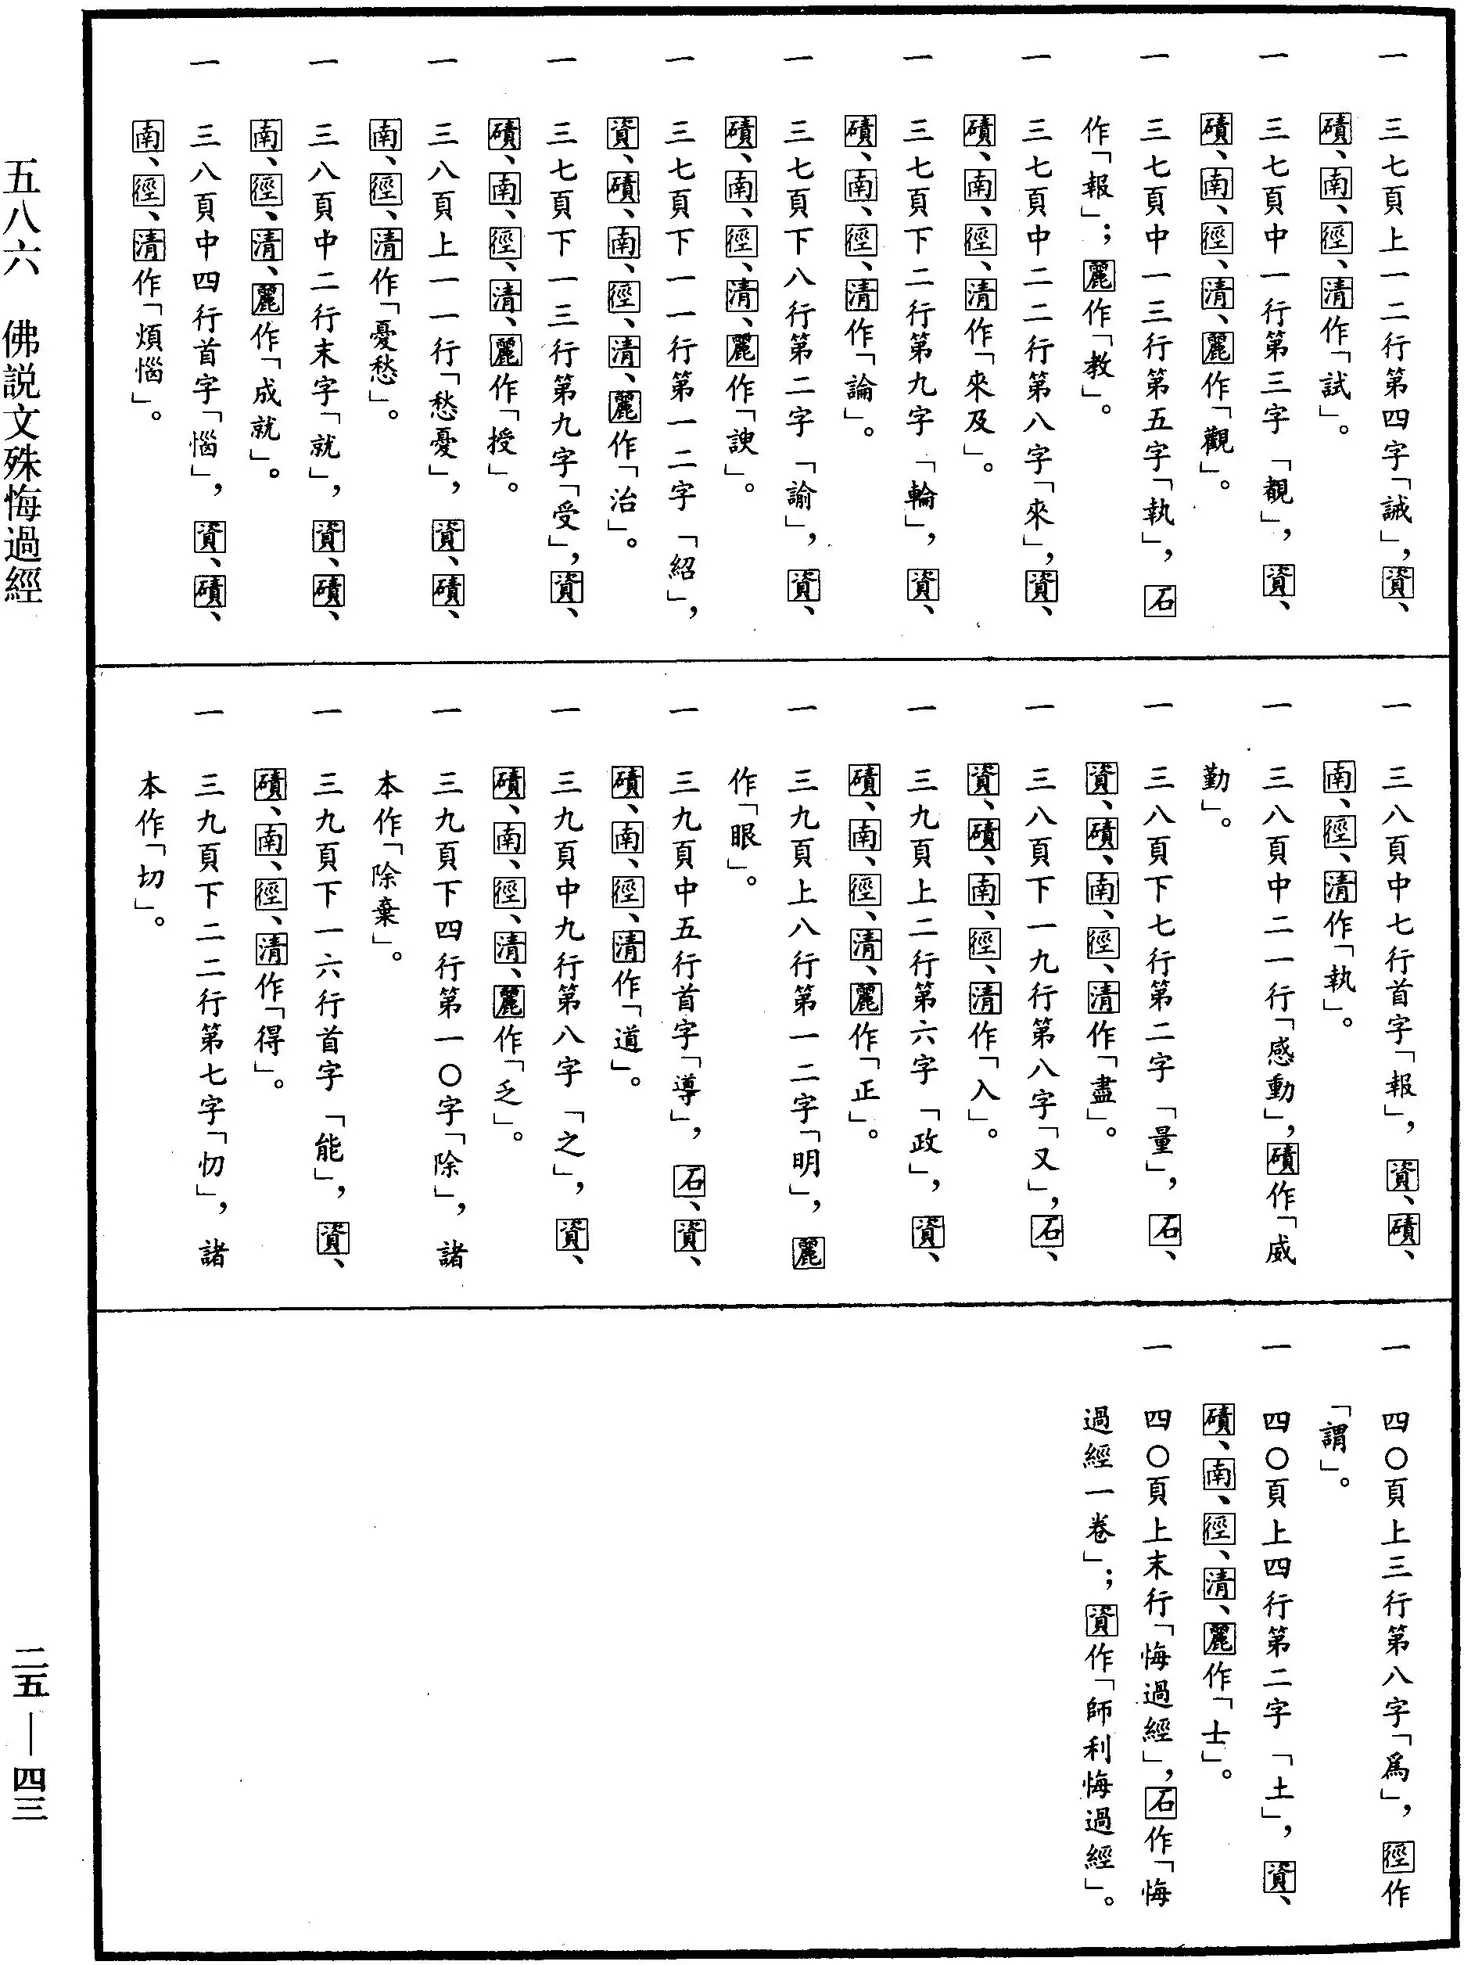 一　三七頁上一二行第四字「誡」，資、
磧、南、徑、清作「試」。
一　三七頁中一行第三字「覩」，資、
磧、南、徑、清、麗作「觀」。
一　三七頁中一三行第五字「執」，石
作「報」；麗作「教」。
一　三七頁中二二行第八字「來」，資、
磧、南、徑、清作「來及」。
一　三七頁下二行第九字「輪」，資、
磧、南、徑、清作「論」。
一　三七頁下八行第二字「諭」，資、
磧、南、徑、清、麗作「諛」。
一　三七頁下一一行第一二字「紹」，
資、磧、南、徑、清、麗作「治」。
一　三七頁下一三行第九字「受」，資、
磧、南、徑、清、麗作「授」。
一　三八頁上一一行「愁憂」，資、磧、
南、徑、清作「憂愁」。
一　三八頁中二行末字「就」，資、磧、
南、徑、清、麗作「成就」。
一　三八頁中四行首字「惱」，資、磧、
南、徑、清作「煩惱」。
一　三八頁中七行首字「報」，資、磧、
南、徑、清作「執」。
一　三八頁中二一行「感動」，磧作「威
勤」。
一　三八頁下七行第二字「量」，石、
資、磧、南、徑、清作「盡」。
一　三八頁下一九行第八字「又」，石、
資、磧、南、徑、清作「入」。
一　三九頁上二行第六字「政」，資、
磧、南、徑、清、麗作「正」。
一　三九頁上八行第一二字「明」，麗
作「眼」。
一　三九頁中五行首字「導」，石、資、
磧、南、徑、清作「道」。
一　三九頁中九行第八字「之」，資、
磧、南、徑、清、麗作「乏」。
一　三九頁下四行第一〇字「除」，諸
本作「除棄」。
一　三九頁下一六行首字「能」，資、
磧、南、徑、清作「得」。
一　三九頁下二二行第七字「忉」，諸
本作「切」。
一　四〇頁上三行第八字「爲」，徑作
「謂」。
一　四〇頁上四行第二字「土」，資、
磧、南、徑、清、麗作「士」。
一　四〇頁上末行「悔過經」，石作「悔
過經一卷」；資作「師利悔過經」。
五八六　佛説文殊悔過經
二五—四三